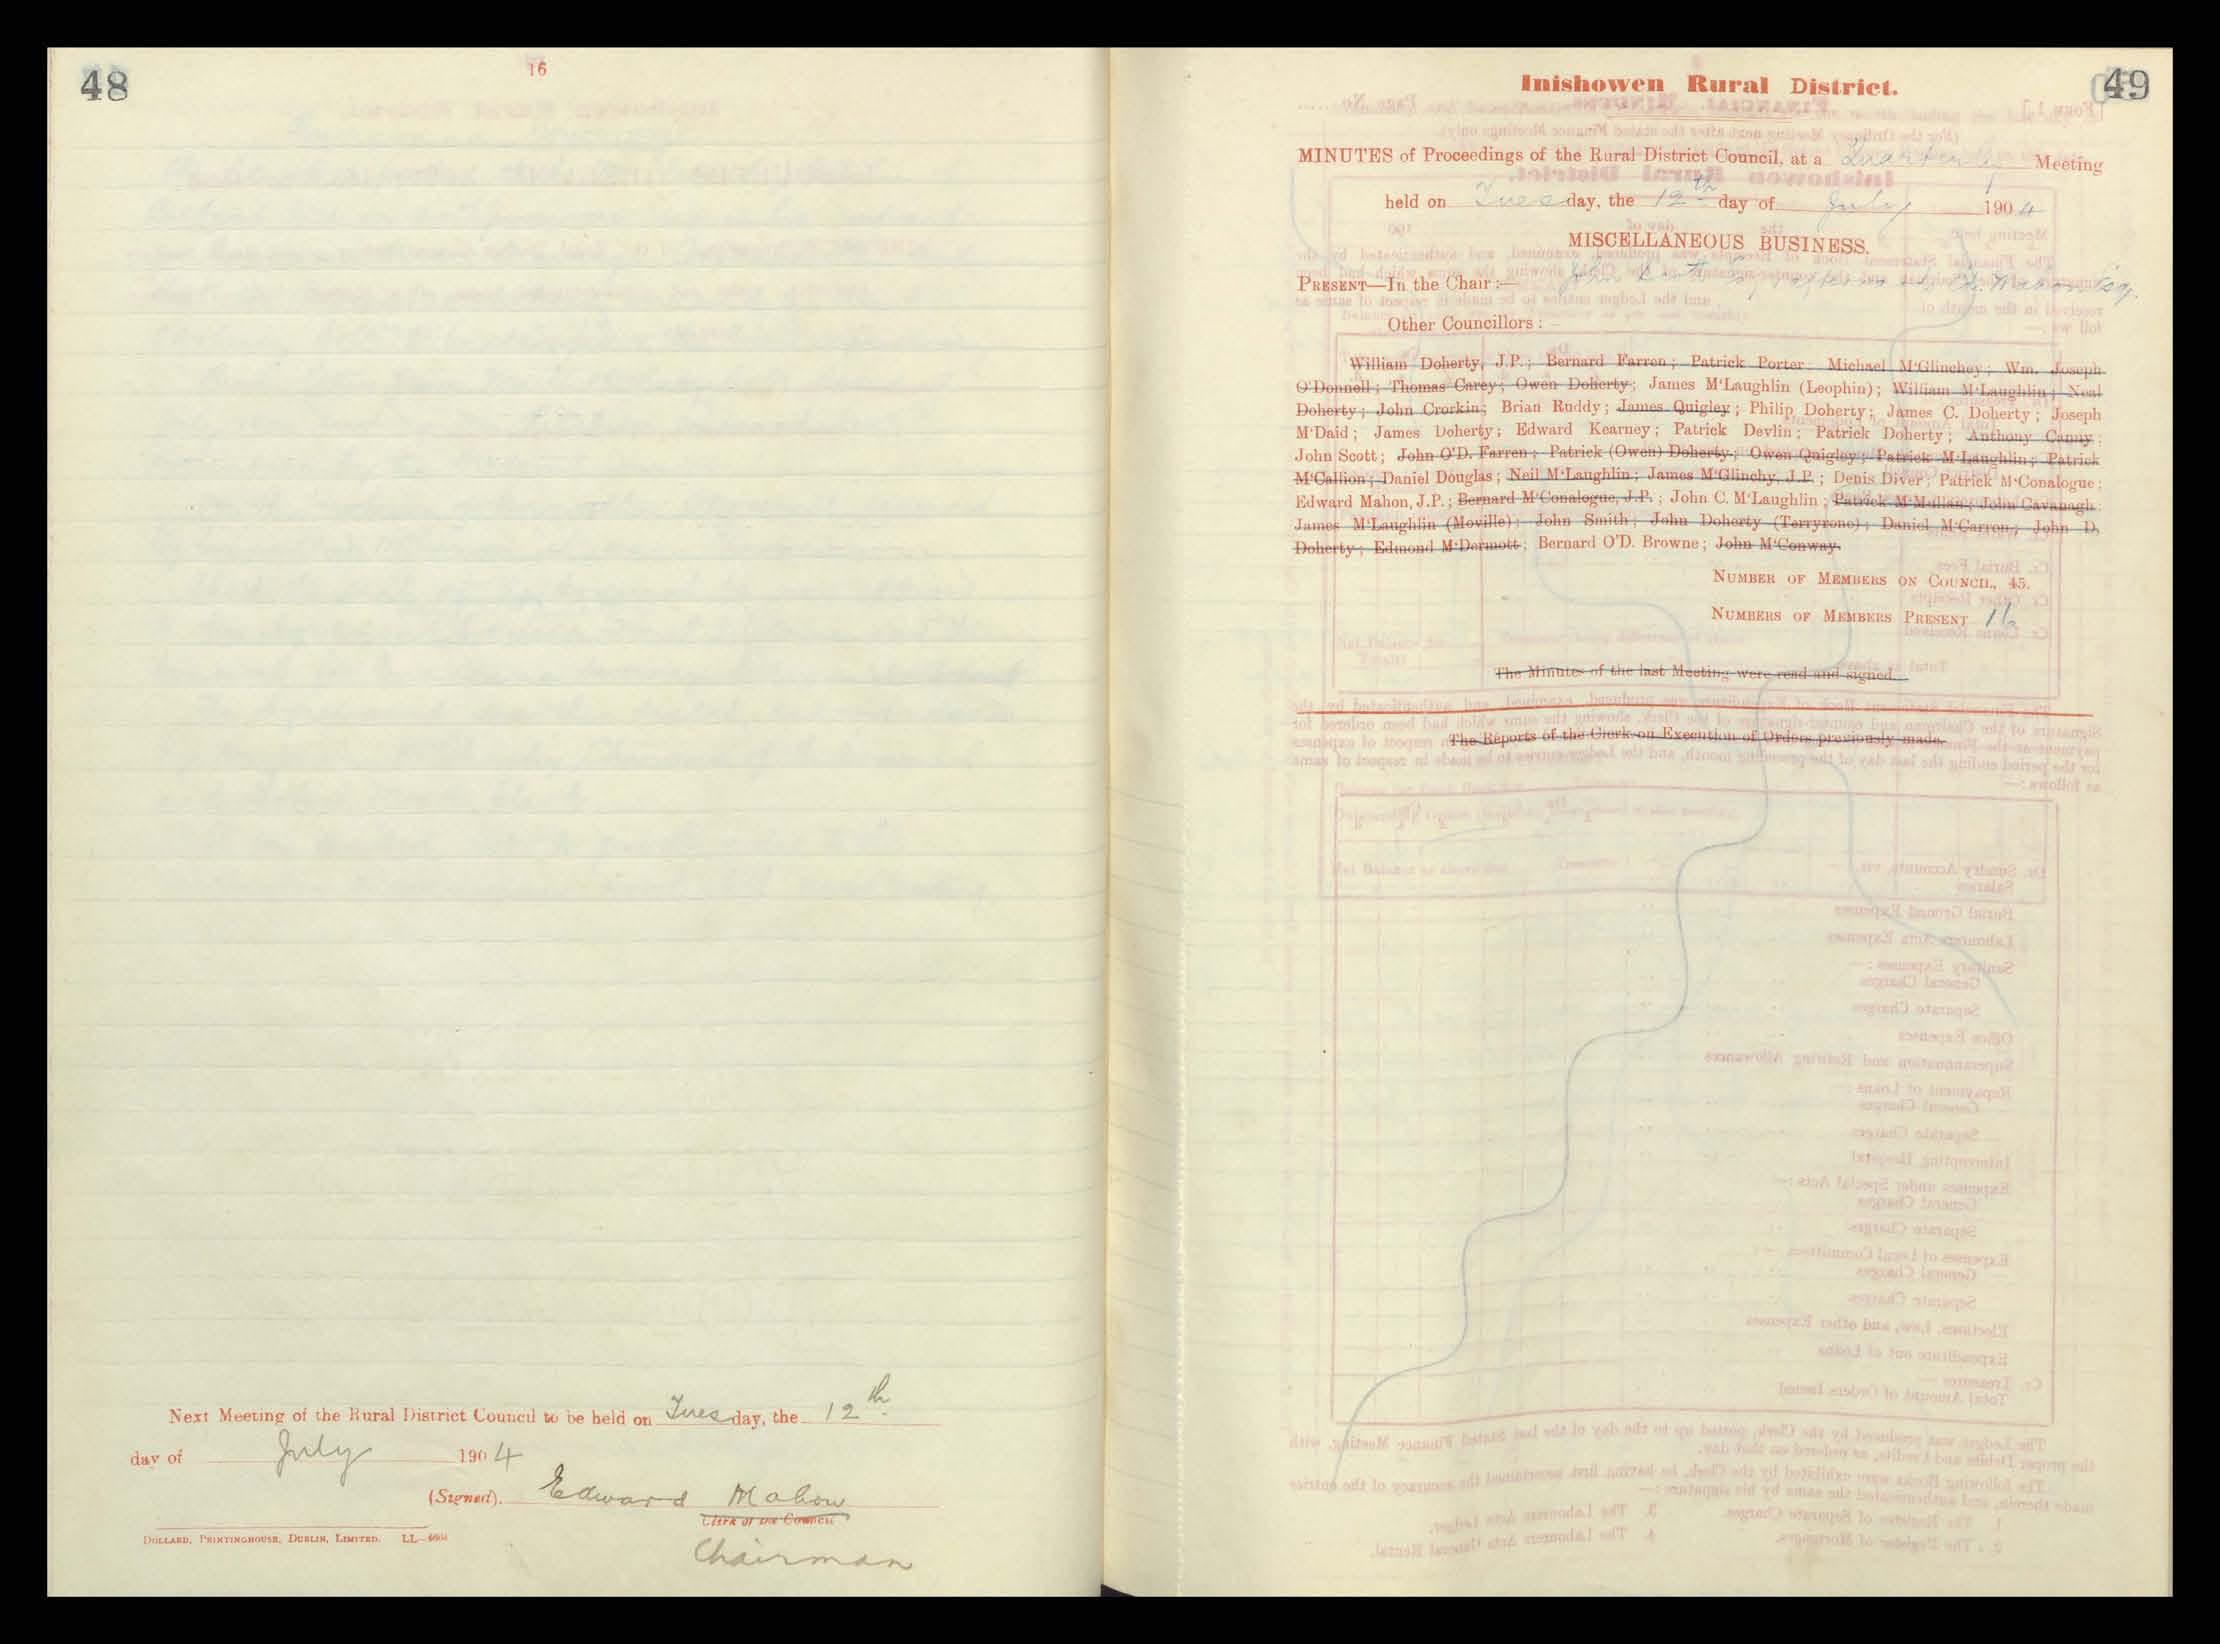 48
16
Next Meeting of the Rural District Council to be held on Tuesday, the 12th
day of July 1904
(Signed). Edward Mahon
Clerk of the Council
Chairman
DOLLARD, PRINTINGHOUSE, DUBLIN, LIMITED. LL
49
Inishowen Rural District.
MINUTES of Proceedings of the Rural District Council, at a Quarterly Meeting
held on Tuesday, the 12th day of July 1904
MISCELLANEOUS BUSINESS.
PRESENT—In the Chair :— John Esq. Mahon Esq.
Other Councillors :
William Doherty, J.P.; Bernard Farren; Patrick Porter Michael M'Glinchey; Wm. Joseph
O'Donnell; Thomas Carey; Owen Doherty; James M'Laughlin (Leophin); William M'Laughlin; Neal
Doherty; John Crorkin; Brian Ruddy; James Quigley; Philip Doherty; James C. Doherty; Joseph
M'Daid; James Doherty; Edward Kearney; Patrick Devlin; Patrick Doherty; Anthony Canny;
John Scott; John O'D. Farren; Patrick (Owen) Doherty; Owen Quigley; Patrick M'Laughlin; Patrick
M'Callion; Daniel Douglas; Neil M'Laughlin; James M'Glinchy, J.P.; Denis Diver; Patrick M'Conalogue;
Edward Mahon, J.P.; Bernard M'Conalogue, J.P.; John C. M'Laughlin; Patrick M'Mullan; John Cavanagh;
James M'Laughlin (Moville); John Smith; John Doherty (Terryrone); Daniel M'Carron; John D.
Doherty; Edmond M'Dermott; Bernard O'D. Browne; John M'Conway.
NUMBER OF MEMBERS ON COUNCIL, 45.
NUMBERS OF MEMBERS PRESENT 16
The Minutes of the last Meeting were read and signed.
The Reports of the Clerk on Execution of Orders previously made.